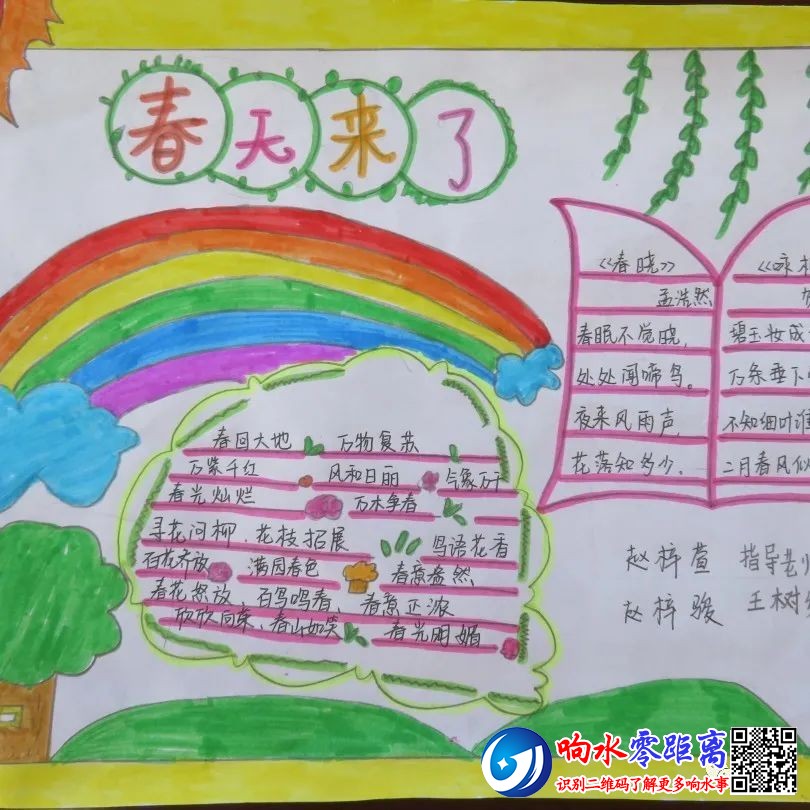 春天来了
《春晓》
孟浩然
春眠不觉晓,
处处闻啼鸟。
夜来风雨声,
花落知多少.
《咏
碧玉妆成
万条垂下
不知细叶谁
二月春风似
春回大地 万物复苏
万紫千红 风和日丽 气象万千
春光灿烂 万木争春
寻花问柳、花枝招展 鸟语花香
百花齐放 满园春色 春意盎然
春花怒放、百鸟鸣春、春意正浓
欣欣向荣、春山如笑 春光明媚
赵梓萱 指导老师
赵梓骏 王树
响水零距离
识别二维码了解更多响水事